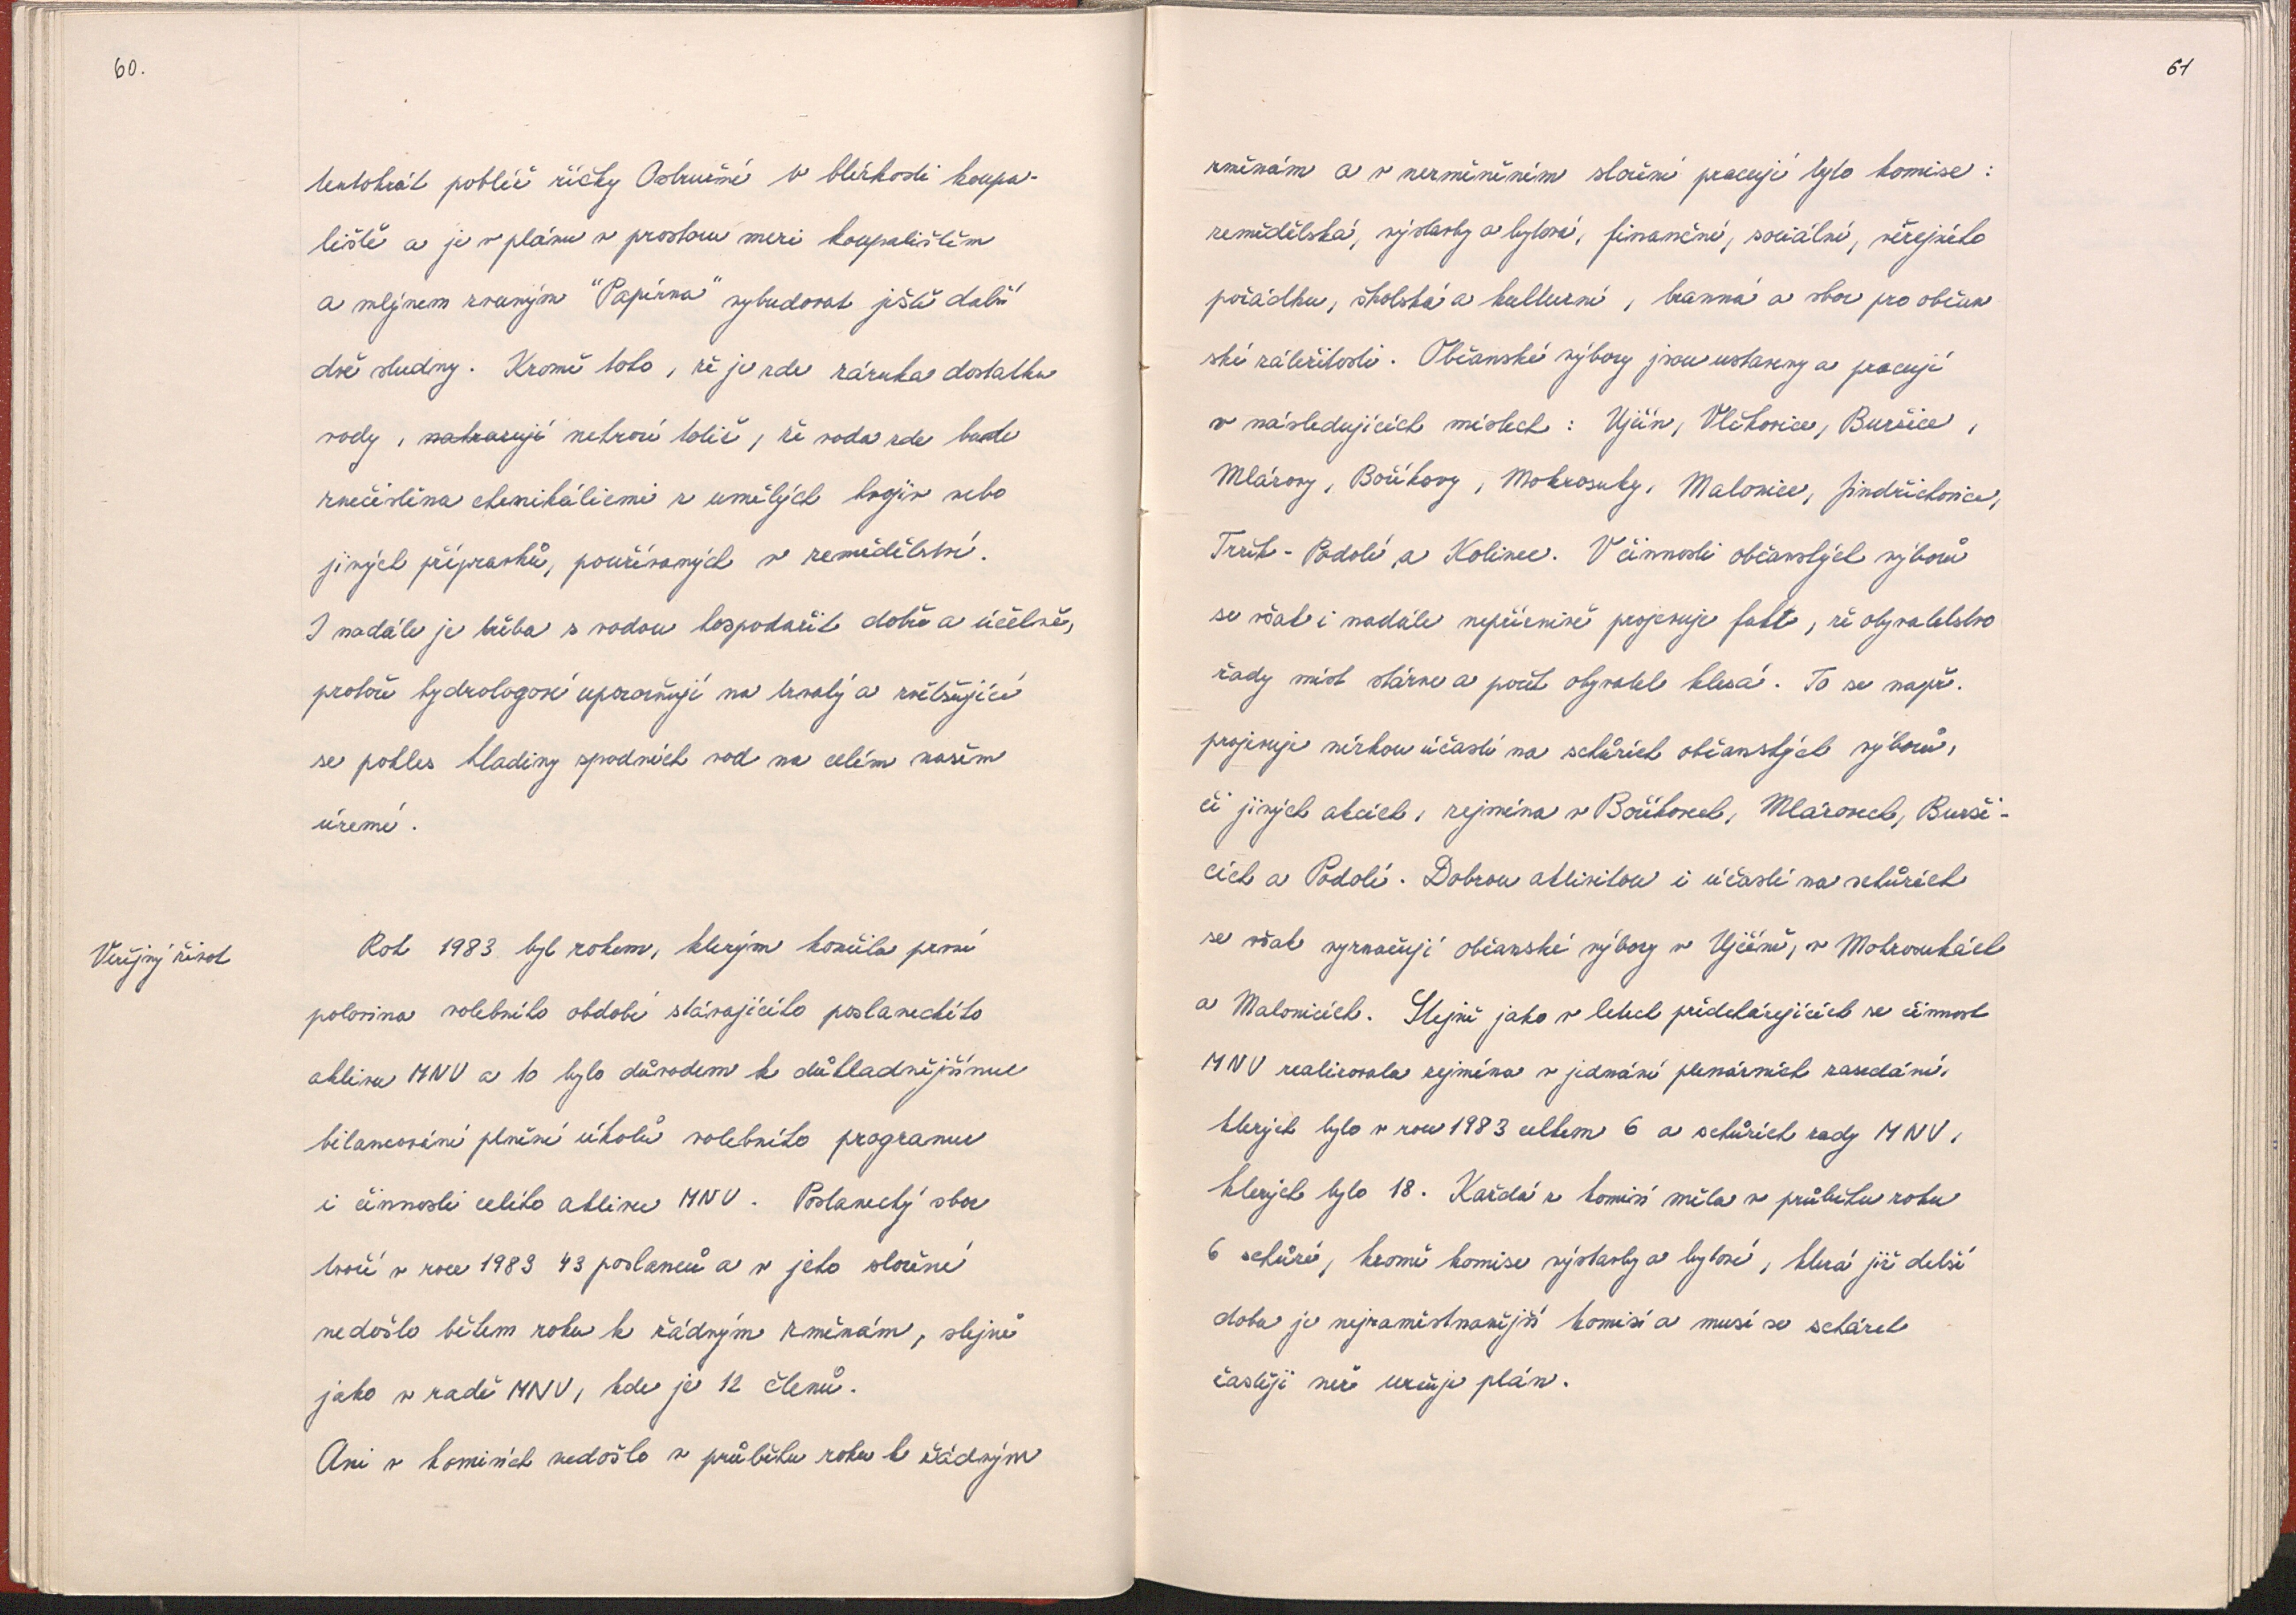 60.
tentokrát poblíž říčky Ostružné v blízkosti koupa-
liště a je v plánu v prostoru mezi koupalištěm
a mlýnem zvaným "Papírna" vybudovat ještě další
dvě studny. Kromě toho, že je zde záruka dostatku
vody, nehrozí totiž, že voda zde bude
znečištěna chemikáliemi z umělých hnojiv nebo
jiných přípravků, používaných v zemědělství.
I nadále je třeba s vodou hospodařit dobře a účelně,
protože hydrologové upozorňují na trvalý a zvětšující
se pokles hladiny spodních vod na celém našem
území.
Veřejný život
Rok 1983 byl rokem, kterým končila první
polovina volebního období stávajícího poslaneckého
aktivu MNV a to bylo důvodem k důkladnějšímu
bilancování plnění úkolů volebního programu
i činnosti celého aktivu MNV. Poslanecký sbor
tvoří v roce 1983 43 poslanců a v jeho složení
nedošlo během roku k žádným změnám, stejně
jako v radě MNV, kde je 12 členů.
Ani v komisích nedošlo v průběhu roku k žádným
61
změnám a v nezměněném složení pracují tyto komise:
zemědělská, výstavby a bytová, finanční, sociální, veřejného
pořádku, školská a kulturní, branná a sbor pro občan
ské záležitosti. Občanské výbory jsou ustaveny a pracují
v následujících místech: Ujčín, Vlčkovice, Buršice,
Mlázovy, Boříkovy, Mokrosuky, Malonice, Jindřichovice,
Tržek-Podolí, a Kolinec. V činnosti občanských výborů
se však i nadále nepříznivě projevuje fakt, že obyvatelstvo
řady míst stárne a počet obyvatel klesá. To se např.
projevuje nízkou účastí na schůzích občanských výborů,
či jiných akcích, zejména v Boříkovech, Mlázovech, Burši-
cích a Podolí. Dobrou aktivitou i účastí na schůzích
se však vyznačují občanské výbory v Ujčíně, v Mokrosukách
a Malonicích. Stejně jako v letech předcházejících se činnost
MNV realizovala zejména v jednání plenárních zasedání,
kterých bylo v roce 1983 celkem 6 a schůzích rady MNV,
kterých bylo 18. Každá z komisí měla v průběhu roku
6 schůzí, kromě komise výstavby a bytové, která již delší
dobu je nejzaměstnanější komisí a musí se scházet
častěji než určuje plán.